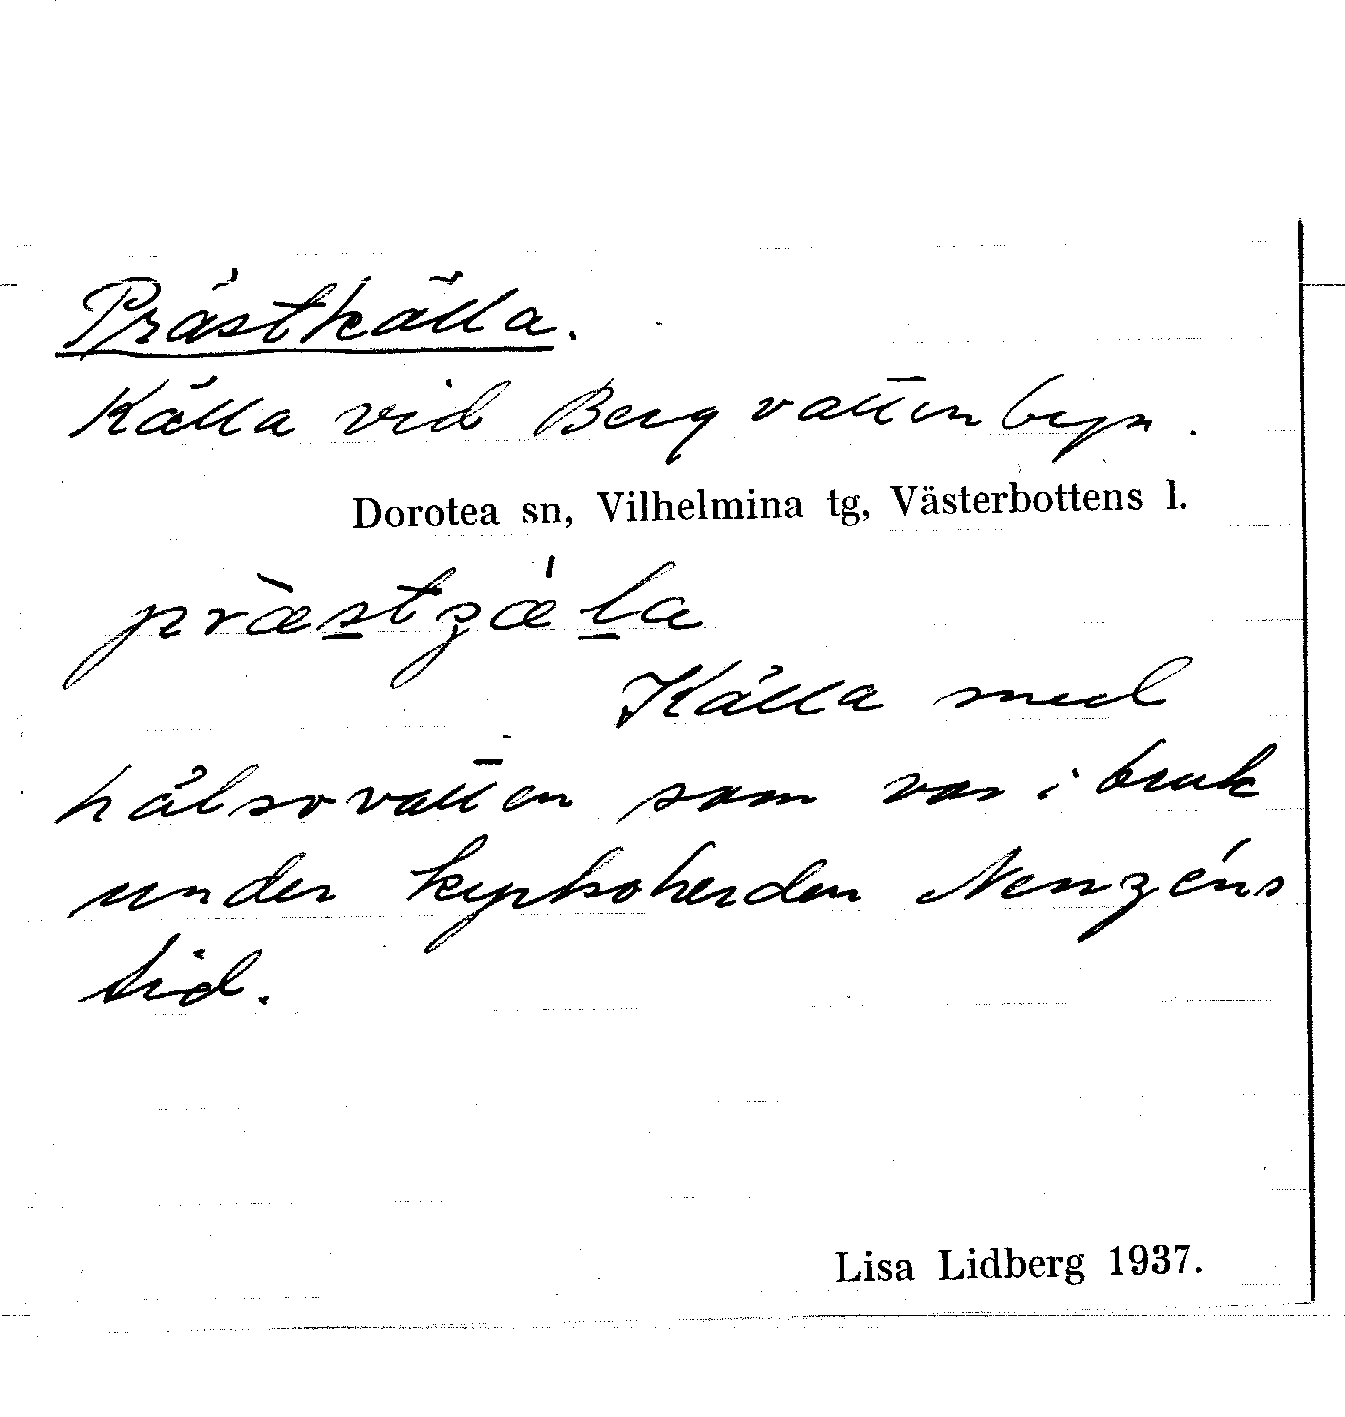 Prästkälla.
Källa vid Bergvattenbyn.
Dorotea sn, Vilhelmina tg, Västerbottens l.
Källa med
hälsovatten som var i bruk
under kyrkoherden Nenzéns
tid.
Lisa Lidberg 1937.